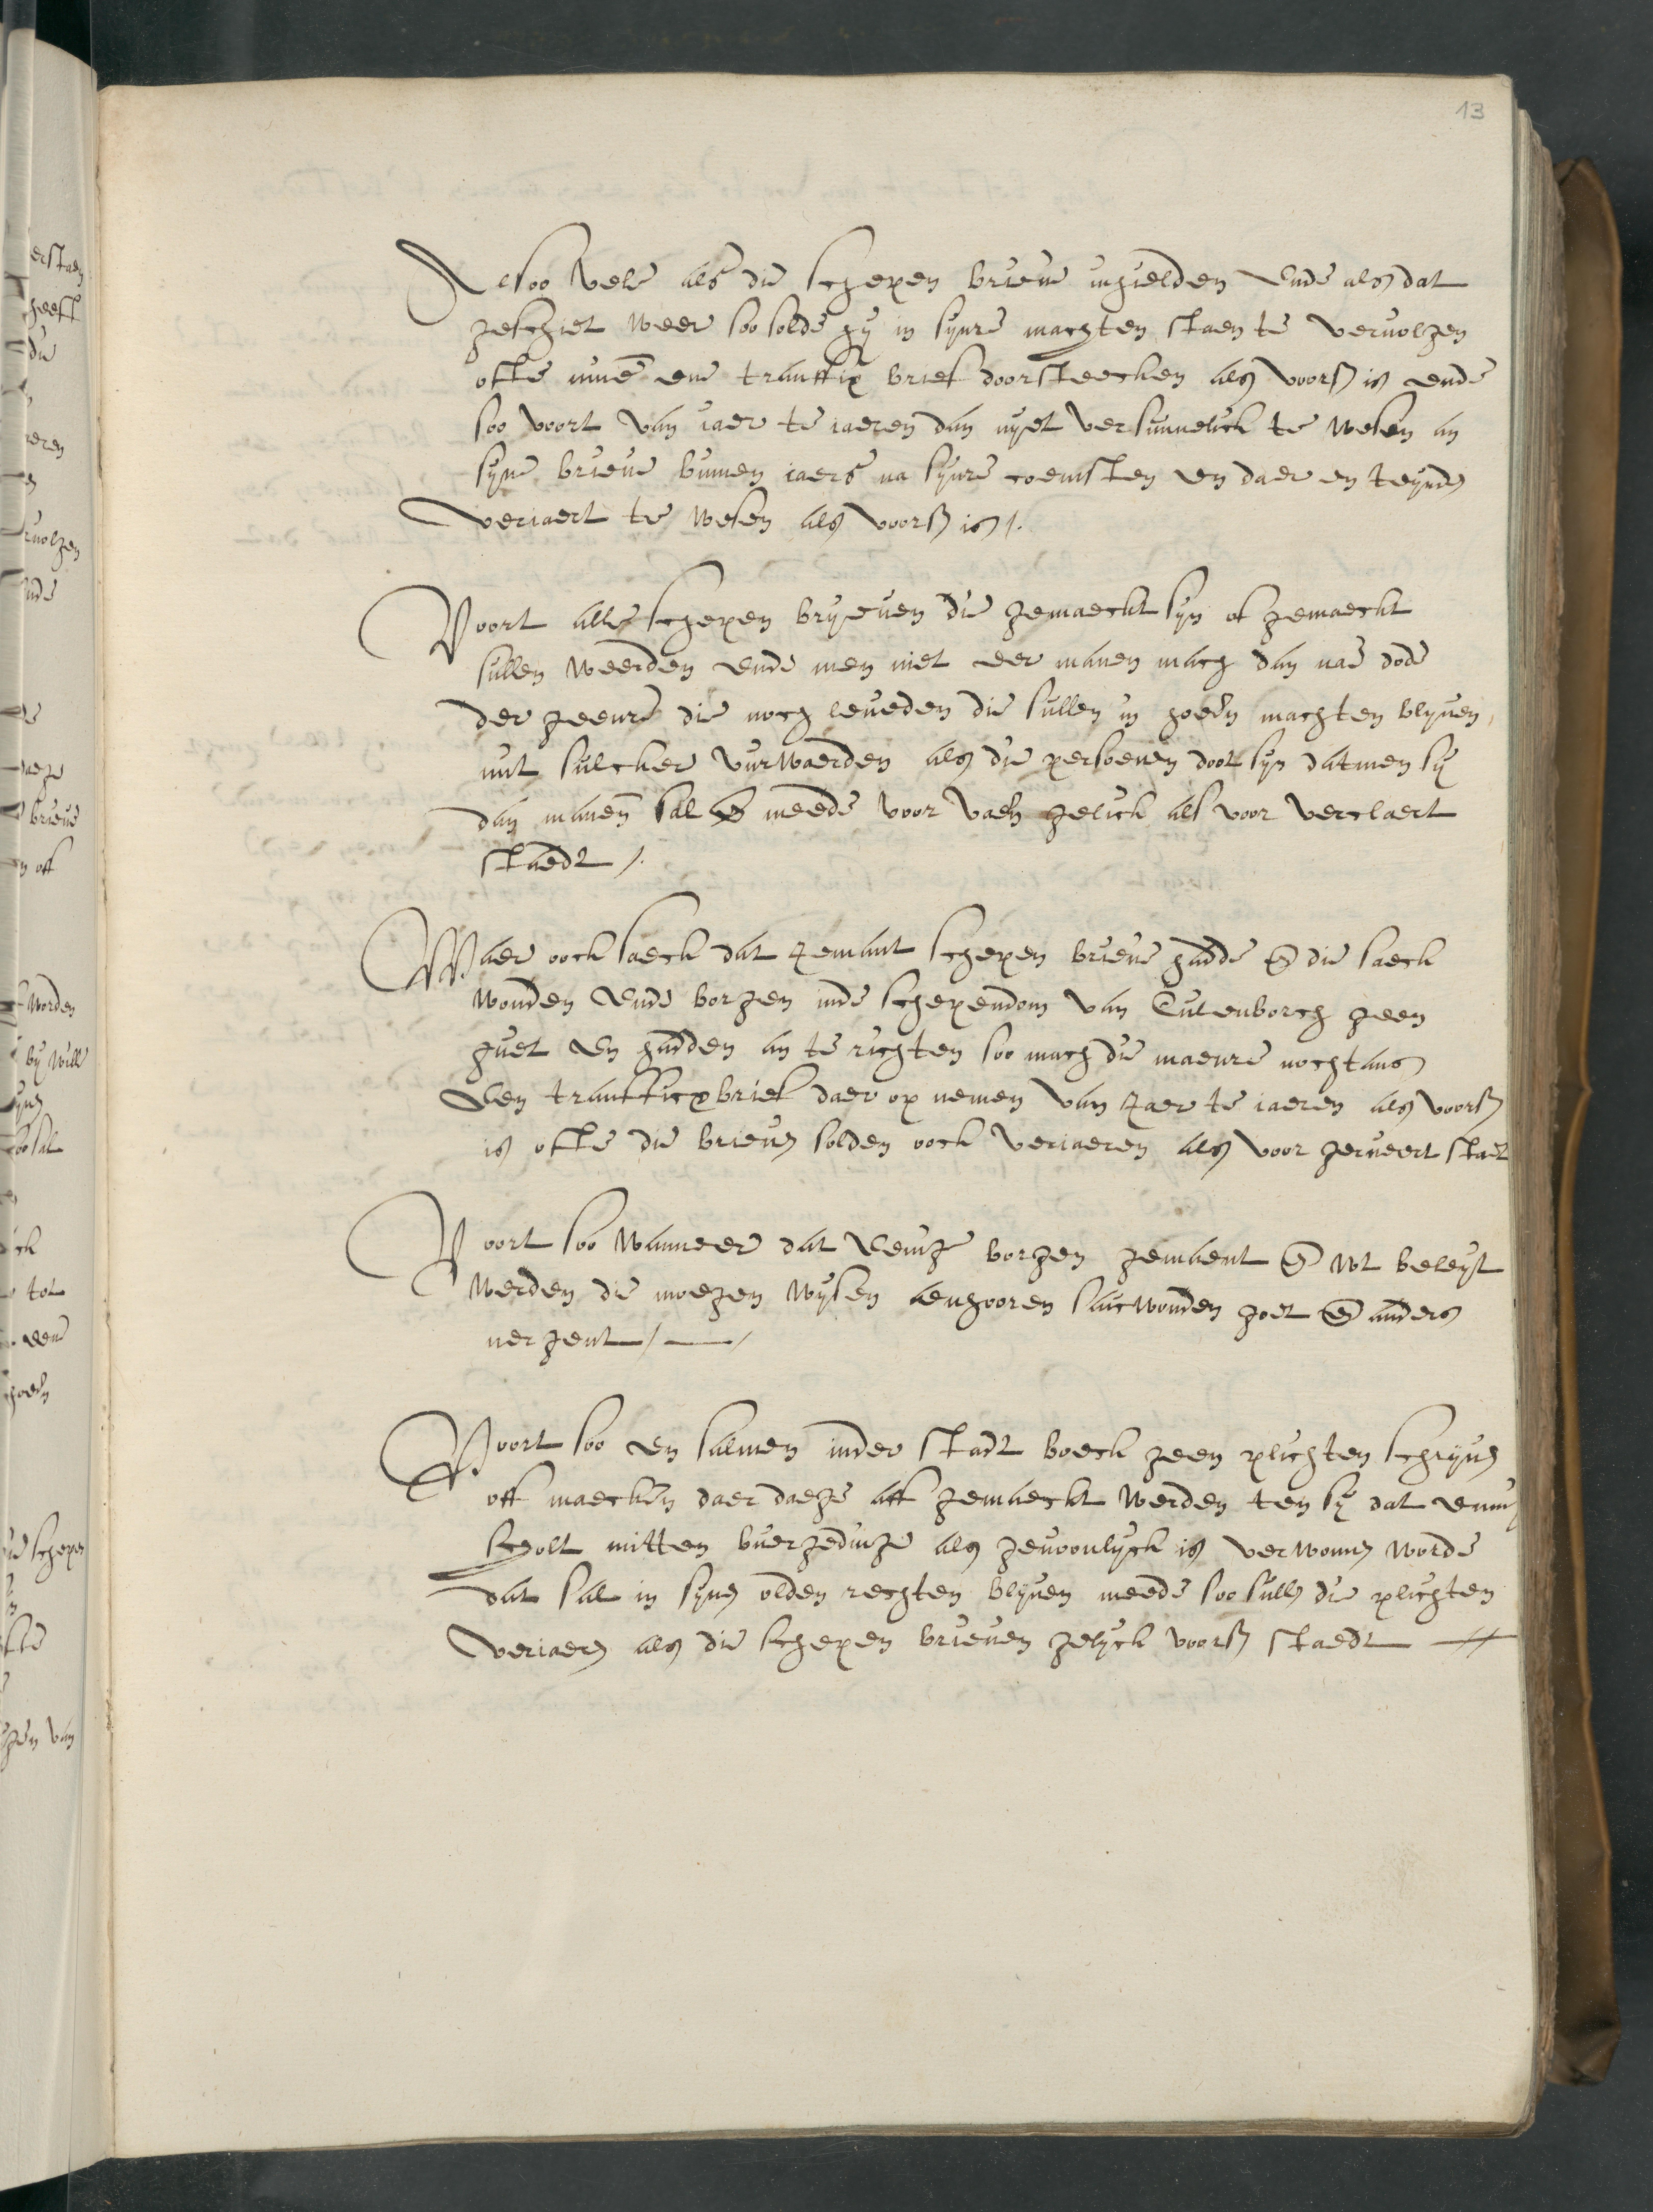 13
Alsoo vele als die schepen brieve inhielden Ende als dat
geschiet weer soo solde hij in synre machten staen te vervolgen
ofte nime ene transfix brief doorsteecken als voors is ende
soo voort van iaer te iaeren dan nyet versumelick te wesen an
syne brieve binnen iaers na synre coemsten en daer en teynde
veriaert te wesen als voors is /.
Voort alle schepen bryeven die gemaeckt syn of gemaeckt
sullen weerden ende men niet eer manen mach dan nae dode
der geenre die noch leveden die sullen in hoeren machten blyven,
mit sulcker vurwaerden als die persoenen doot syn datmen sy
dan manen sal en meede voor vaen gelick als voor verclaert
staedt /.
Waer oock saeck dat yemant schepen brieve hadde en die saeck
wonden ende borgen inde schependom van Culenborch geen
guet en hadden an te richten soo mach die maenre nochtans
Een transfficxbrief daer op nemen van yaer te iaeren als voors
is ofte die brieven solden oock veriaeren als voor geruert staet
Voort soo wanneer dat Eenige borgen gemaent en wt beleyt
werden die moegen wysen aenhooren saicwonden hoet en anders
nergent /—/
Voort soo en salmen inder stadt boeck geen plichten schryven
off maecken daer daege aff gemaeckt werden ten sy dat enich
scholt mitten buergedinge als gewoonlyck is verwonnen worde
dat sal in synen olden rechten blyven meede soo sullen die plichten
veriaeren als die schepen brieven gelyck voors staedt